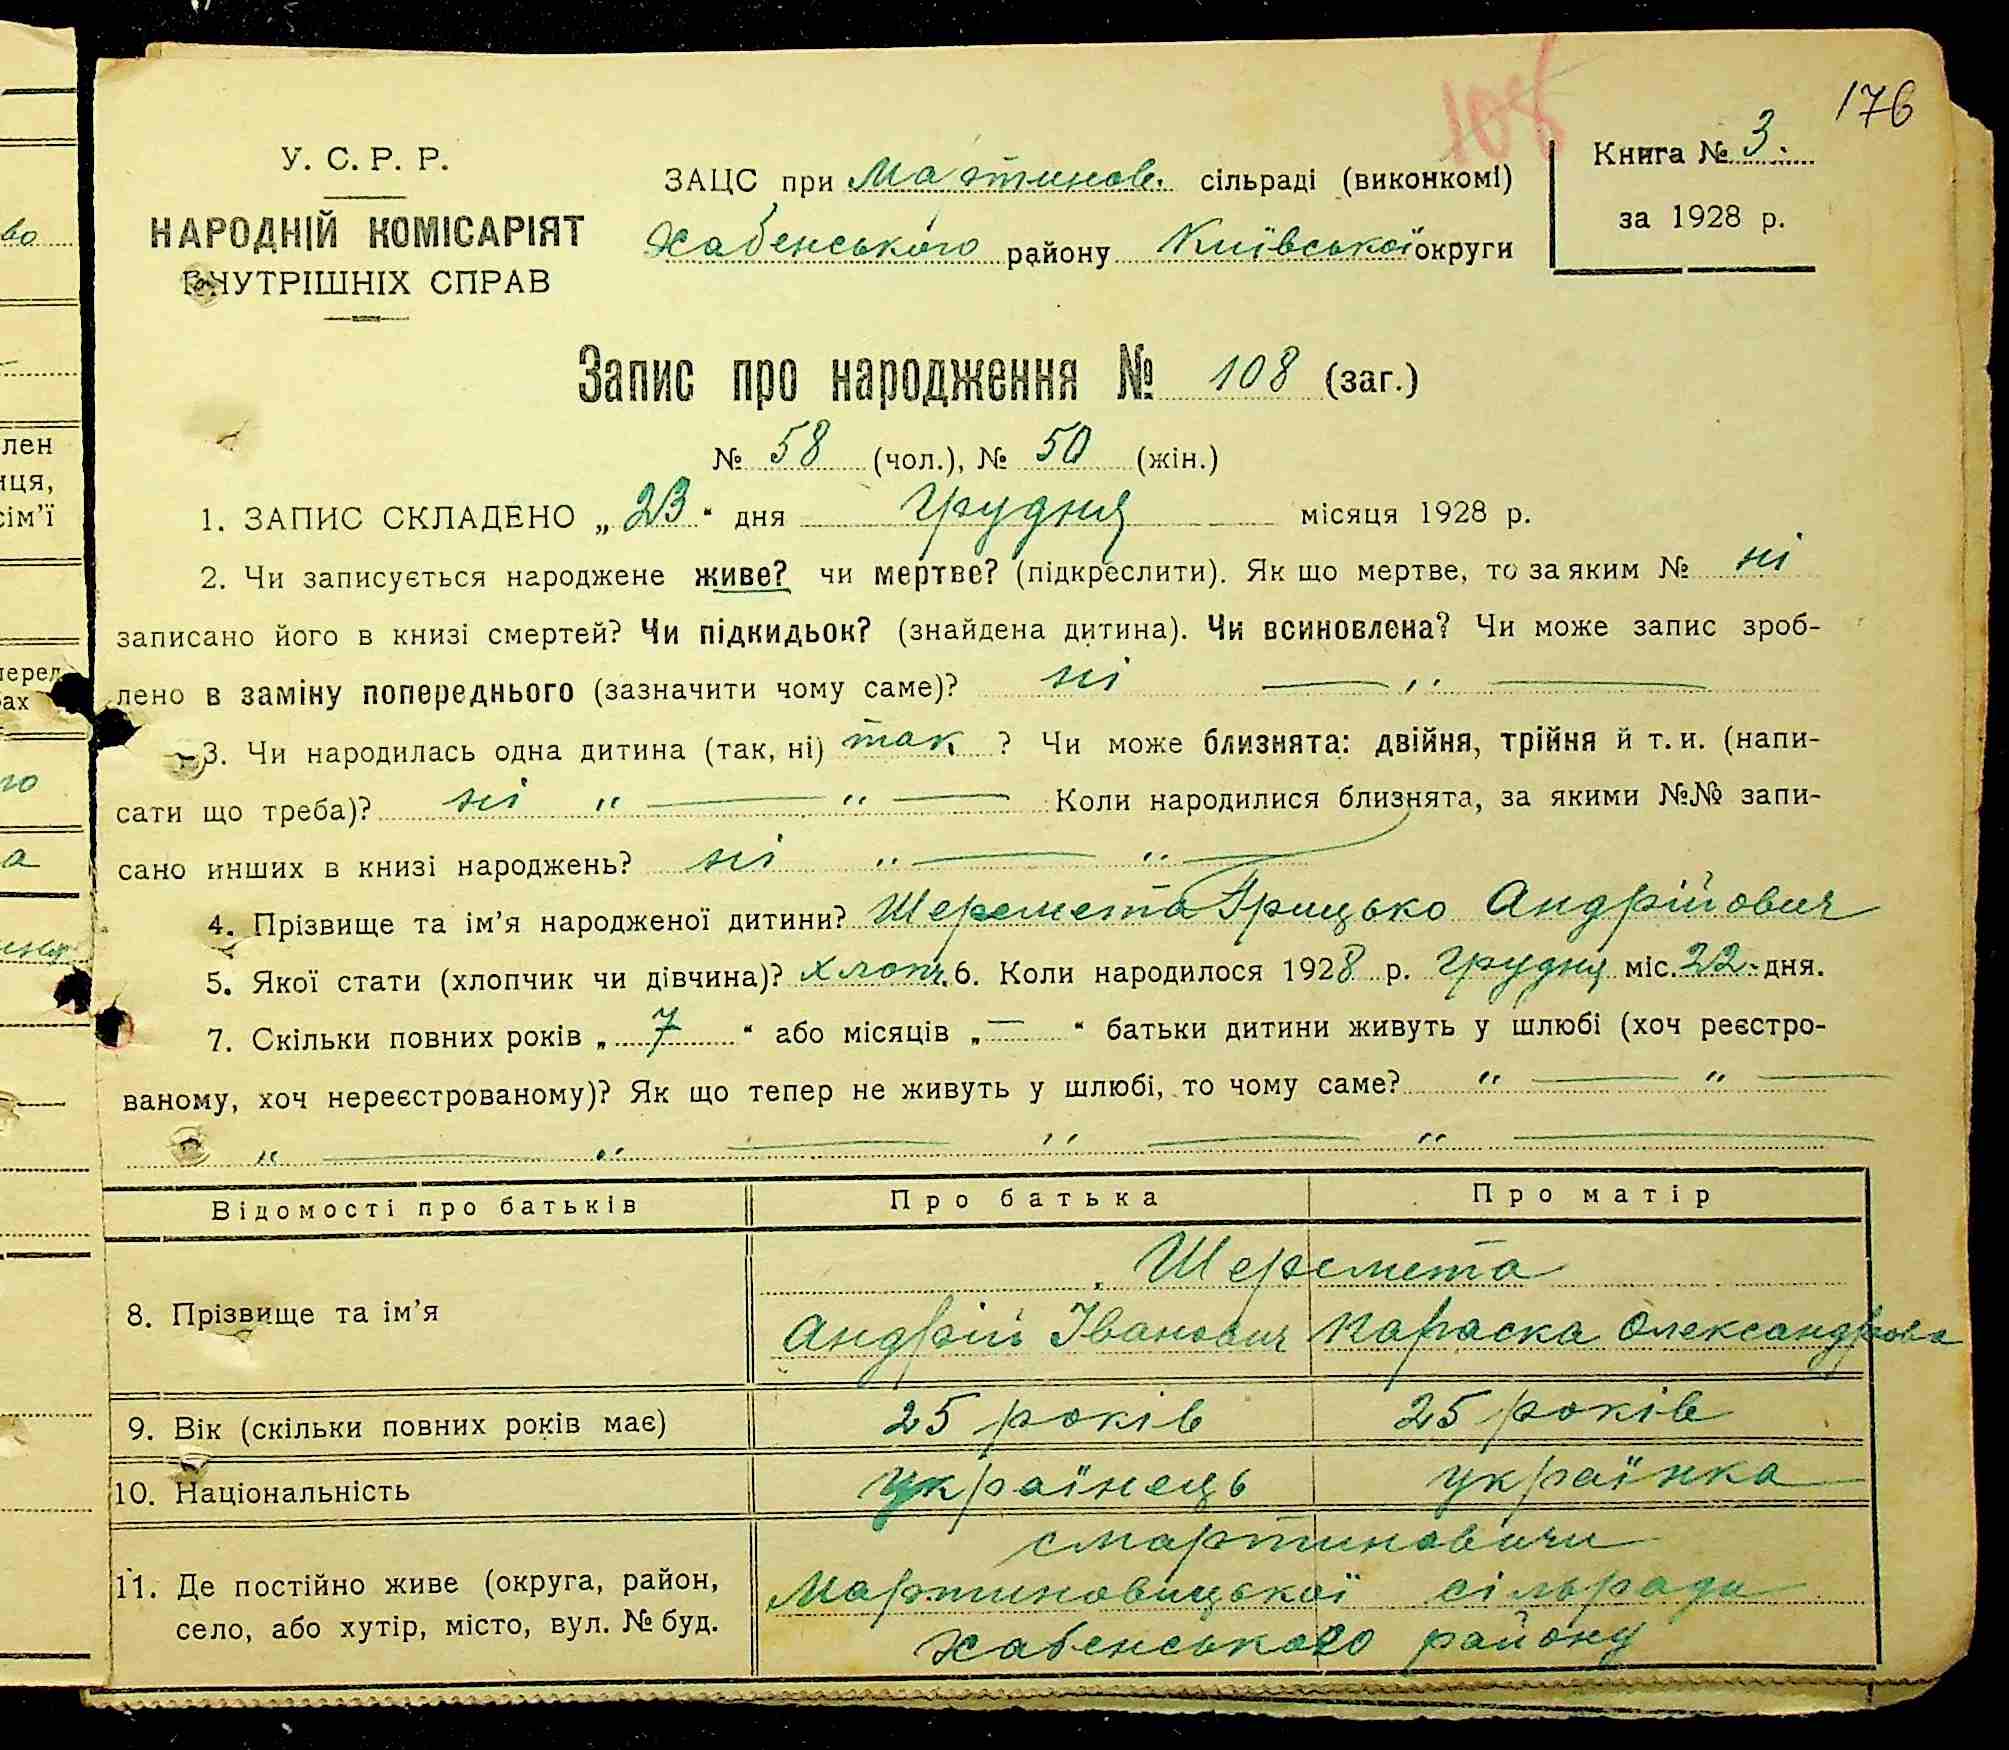 176
108
У. С. Р. Р.
НАРОДНІЙ КОМІСАРІЯТ
ВНУТРІШНІХ СПРАВ
ЗАЦС при Мартинов. сільраді (виконкомі)
Хабенського району Київської округи
Книга № 3.
за 1928 р.
Запис про народження № 108 (заг.)
№ 58 (чол.), № 50 (жін.)
1. ЗАПИС СКЛАДЕНО „ 23 “ дня грудня місяця 1928 р.
2. Чи записується народжене живе? чи мертве? (підкреслити). Як що мертве, то за яким № ні
записано його в книзі смертей? Чи підкидьок? (знайдена дитина). Чи всиновлена? Чи може запис зроб-
лено в заміну попереднього (зазначити чому саме)? ні — „ —
3. Чи народилась одна дитина (так, ні) так ? Чи може близнята: двійня, трійня й т. и. (напи-
сати що треба)? ні „ — „ — Коли народилися близнята, за якими №№ запи-
сано инших в книзі народжень? ні „ — „ —
4. Прізвище та ім’я народженої дитини? Шеремета Грицько Андрійович
5. Якої стати (хлопчик чи дівчина)? хлопч. 6. Коли народилося 1928 р. грудня міс. 22 дня.
7. Скільки повних років „ 7 “ або місяців „ — “ батьки дитини живуть у шлюбі (хоч реєстро-
ваному, хоч нереєстрованому)? Як що тепер не живуть у шлюбі, то чому саме? „ — „ —
„ — „ — „ — „ —
Відомості про батьків Про батька Про матір
Шеремета
8. Прізвище та ім’я Андрій Іванович Параска Олександрова
9. Вік (скільки повних років має) 25 років 25 років
10. Національність українець українка
с Мартиновичи
11. Де постійно живе (округа, район, Мартиновицької сільради
село, або хутір, місто, вул. № буд. Хабенського району
во
лен
иця,
сім’ї
перед
бах
го
а